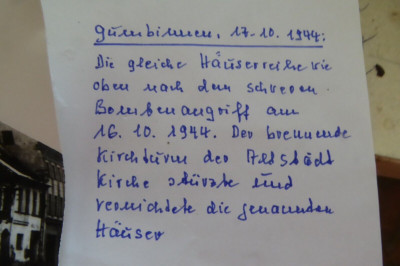 Gumbinnen, 17.10.1944:
Die gleiche Häuserreihe wie
oben nach dem schweren
Bombenangriff am
16.10.1944. Der brennende
Kirchturm der Altstädt
Kirche stürzte und
vernichtete die genannten
Häuser